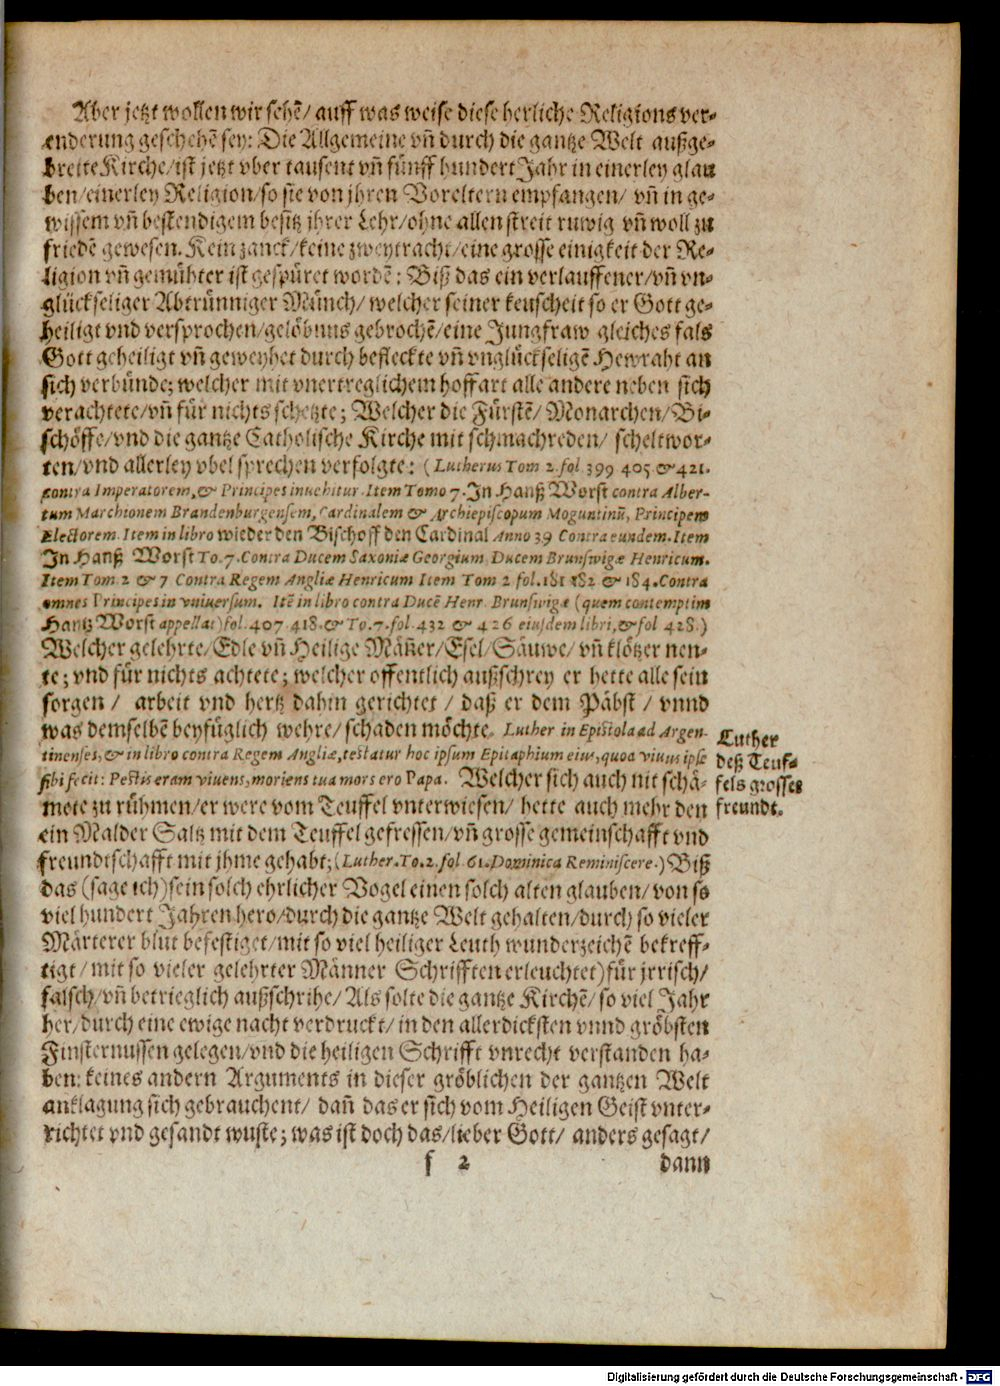 Aber jetzt wollen wir sehẽ/ auff was weise diese herliche Religions ver-
enderung geschehẽ sey: Die Allgemeine vñ durch die gantze Welt außge-
breite Kirche/ ist jetzt vber tausent vñ fünff hundert Jahr in einerley glau
ben/ einerley Religion/ so sie von jhren Voreltern empfangen/ vñ in ge-
wissem vñ bestendigem besitz jhrer Lehr/ ohne allen streit ruwig vñ woll zu
friedẽ gewesen. Kein zanck/ keine zweytracht/ eine grosse einigkeit der Re-
ligion vñ gemühter ist gespüret wordẽ: Biß das ein verlauffener/ vñ vn-
glückseliger Abtrünniger Münch/ welcher seiner keuscheit so er Gott ge-
heiligt vnd versprochen/ gelöbnus gebrochẽ/ eine Jungfraw gleiches fals
Gott geheiligt vñ geweyhet durch befleckte vñ vnglückseligẽ Hewraht an
sich verbünde; welcher mit vnertreglichem hoffart alle andere neben sich
verachtete/ vñ für nichts schetzte; Welcher die Fürstẽ/ Monarchen/ Bi-
schöffe/ vnd die gantze Catholische Kirche mit schmachreden/ scheltwor-
ten/ vnd allerley vbel sprechen verfolgte: (Lutherus Tom 2. fol 399 405 & 421.
contra Imperatorem, & Principes inuehitur. Item Tomo 7. In Hanß Worst contra Alber-
tum Marchionem Brandenburgensem, Cardinalem & Archiepiscopum Moguntinũ, Principem
Electorem. Item in libro wieder den Bischoff den Cardinal Anno 39 Contra eundem. Item
In Hanß Worst To. 7. Contra Ducem Saxoniæ Georgium. Ducem Brunswigæ Henricum.
Item Tom 2 & 7 Contra Regem Angliæ Henricum Item Tom 2 fol. 181 182 & 184. Contra
omnes Principes in vniuersum. Itẽ in libro contra Ducẽ Henr. Brunswigæ (quem contemptim
Hantz Worst appellat) fol. 407 418. & To. 7. fol 432 & 426 eiusdem libri, & fol 428.)
Welcher gelehrte/ Edle vñ Heilige Mäñer/ Esel/ Säuwe/ vñ klötzer nen-
te; vnd für nichts achtete; welcher offentlich außschrey er hette alle sein
sorgen/ arbeit vnd hertz dahin gerichtet/ daß er dem Päbst/ vnnd
was demselbẽ beyfüglich wehre/ schaden möchte. Luther in Epistola ad Argen-
tinenses, & in libro contra Regem Angliæ, testatur hoc ipsum Epitaphium eius, quod viuus ipse
sibi fecit: Pestis eram viuens, moriens tua mors ero Papa. Welcher sich auch nit schä-
mete zu rühmen/ er were vom Teuffel vnterwiesen/ hette auch mehr den
ein Malder Saltz mit dem Teuffel gefressen/ vñ grosse gemeinschafft vnd
freundtschafft mit jhme gehabt; (Luther. To. 2. fol 61. Dominica Reminiscere.) Biß
das (sage ich) sein solch ehrlicher Vogel einen solch alten glauben/ von so
viel hundert Jahren hero/ durch die gantze Welt gehalten/ durch so vieler
Märterer blut befestiget/ mit so viel heiliger Leuth wunderzeichẽ bekreff-
tigt/ mit so vieler gelehrter Männer Schrifften erleuchtet) für jrrisch/
falsch/ vñ betrieglich außschrihe/ Als solte die gantze Kirchẽ/ so viel Jahr
her/ durch eine ewige nacht verdruckt/ in den allerdicksten vnnd gröbsten
Finsternussen gelegen/ vnd die heiligen Schrifft vnrecht verstanden ha-
ben: keines andern Arguments in dieser gröblichen der gantzen Welt
anklagung sich gebrauchent/ dañ das er sich vom Heiligen Geist vnter-
richtet vnd gesandt wuste; was ist doch das/ lieber Gott/ anders gesagt/
f 2 dann
Luther
deß Teuf-
fels grosses
freundt.
Digitalisierung gefördert durch die Deutsche Forschungsgemeinschaft - DFG